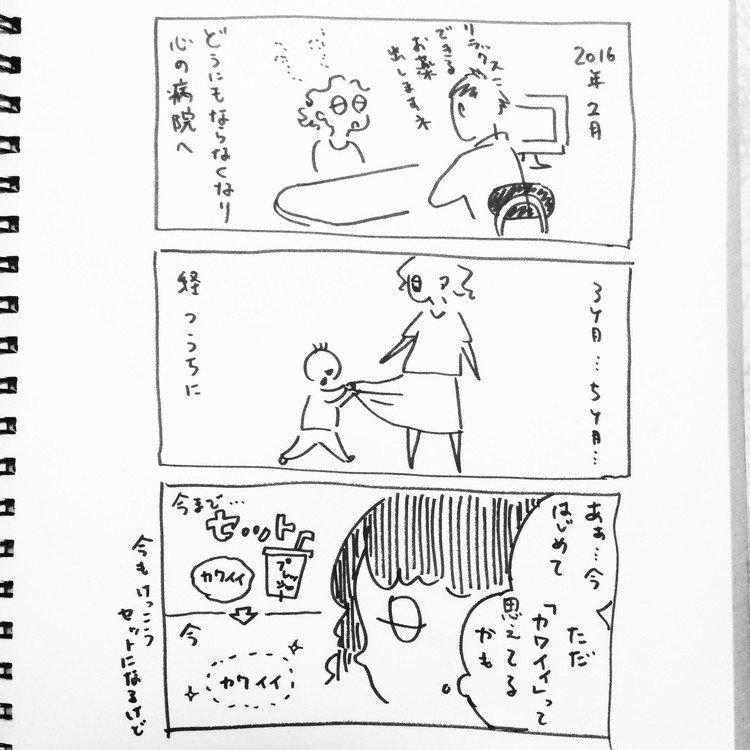 2016年2月
リラックス
できる
お薬
出しますネ
どうにもならなくなり
心の病院へ
3ヶ月…5ヶ月…
経つうちに
あぁ…今
はじめて
ただ
「カワイイ」って
思えてる
かも
今まで…
セット
カワイイ
プレッシャー
今
カワイイ
今もけっこう
セットになるけど